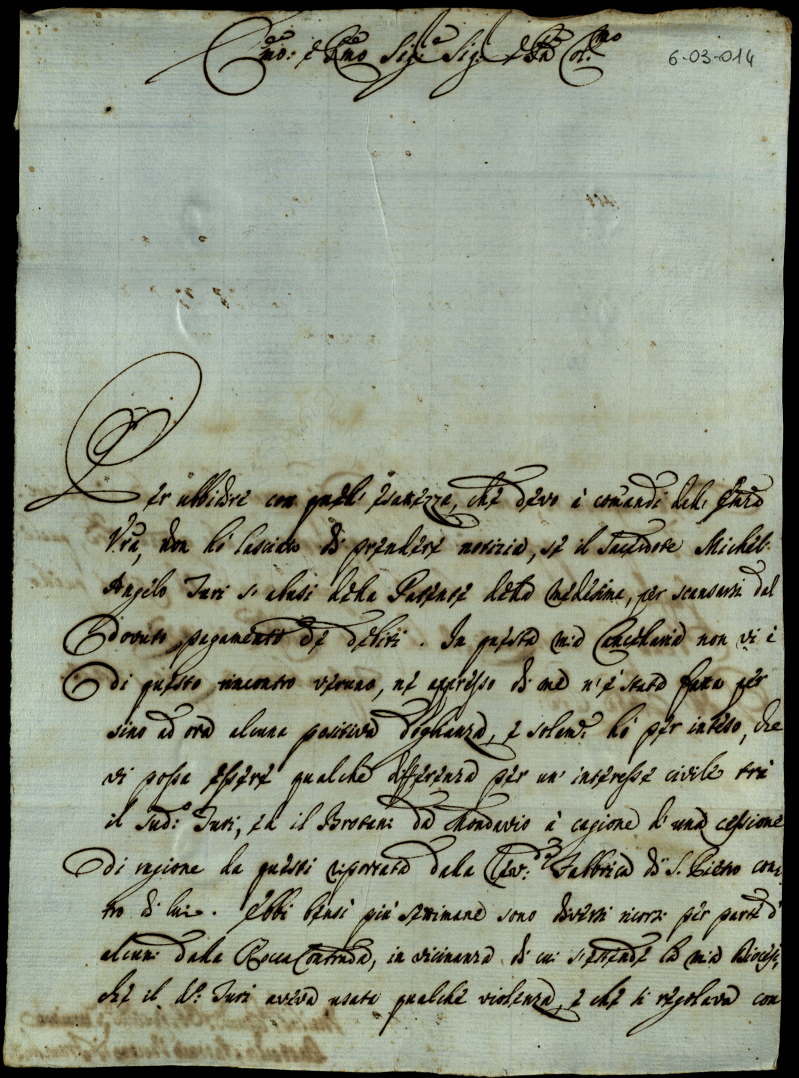 Emo: e Rmo Sig.e Sig. e Pn Col.mo
6-03-014
Per ubbidire con quell' esatezza, che devo à comandi dell' Emza
Vra, non hò lasciato di prendere notizia, se il Sacerdote Michel-
Angelo Turi si abusi della Patente della medesima, per scansarsi dal
dovuto pagamento de debiti. In questa mia Cancellaria non vi è
di questo rincontro veruno, nè appresso di me n'è stata fatta per
sino ad ora alcuna positiva doglianza, e solam.e hò per inteso, che
vi possa essere qualche differenza per un' interesse civile trà
il Sud.o Turi, ed il Brotani da Mondavio à cagione d' una cessione
di ragione da questi riportata dalla Rev.da Fabbrica di S. Pietro con-
tro di lui. Ebbi bensì più settimane sono diversi ricorsi per parte d'
alcuni dalla Rocca Contrada, in vicinanza di cui s'estende la mia Diocesi,
che il d.o Turi aveva usato qualche violenza, e che si regolava con